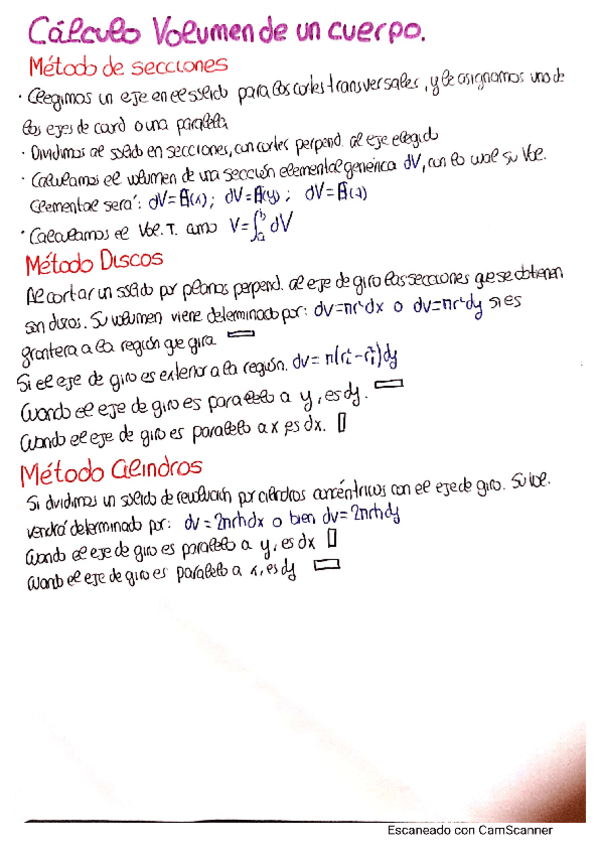 Cálculo Volumen de un cuerpo.
Método de secciones
· Elegimos un eje en el sólido para los cortes transversales, y le asignamos uno de
los ejes de coord o una paralela
· Dividimos al solido en secciones, con cortes perpend. al eje elegido
· Calculamos el volumen de una sección elemental generica dV, con lo cual su Vol.
Elemental será: dV=A(x); dV=A(y); dV=A(z)
· Calculamos el Vol. T. como V=∫ₐᵇ dV
Método Discos
Al cortar un solido por planos perpend. al eje de giro las secciones que se obtienen
son discos. Su volumen viene determinado por: dv=πr²dx o dv=πr²dy si es
frontera a la región que gira.
Si el eje de giro es exterior a la región. dv=π(r²-r²)dy
Cuando el eje de giro es paralelo a y, es dy.
Cuando el eje de giro es paralelo a x es dx.
Método Cilindros
Si dividimos un solido de revolución por cilindros concéntricos con el eje de giro. Su vol.
vendrá determinado por: dv=2πrhdx o bien dv=2πrhdy
Cuando el eje de giro es paralelo a y, es dx
Cuando el eje de giro es paralelo a x, es dy
Escaneado con CamScanner